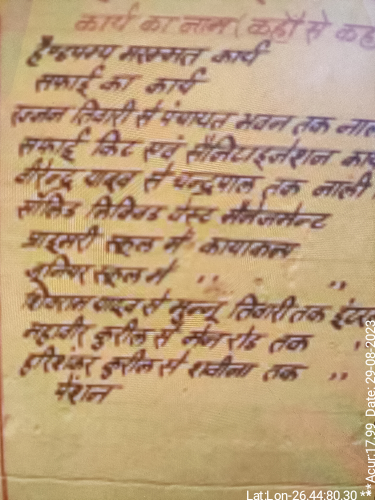 कार्य का नाम (कहाँ से कहा
हैण्डपम्प मरम्मत कार्य
सफाई का कार्य
रज्जन तिवारी से पंचायत भवन तक नाल
सफाई किट एवं सैनिटाइजेशन कार्य
वीरेन्द्र यादव से चन्द्रपाल तक नाली
सॉलिड लिक्विड वेस्ट मैनेजमेन्ट
प्राइमरी स्कूल में कायाकल्प
जूनियर स्कूल में ,, ,,
शिवराम यादव से मुन्नू तिवारी तक इंटर
महावीर कुरील से मेन रोड तक
हरिशंकर कुरील से तक ,,
पेंशन
Lat:Lon-26.44:80.30 **Acur:17.99 Date: 29-08-2023